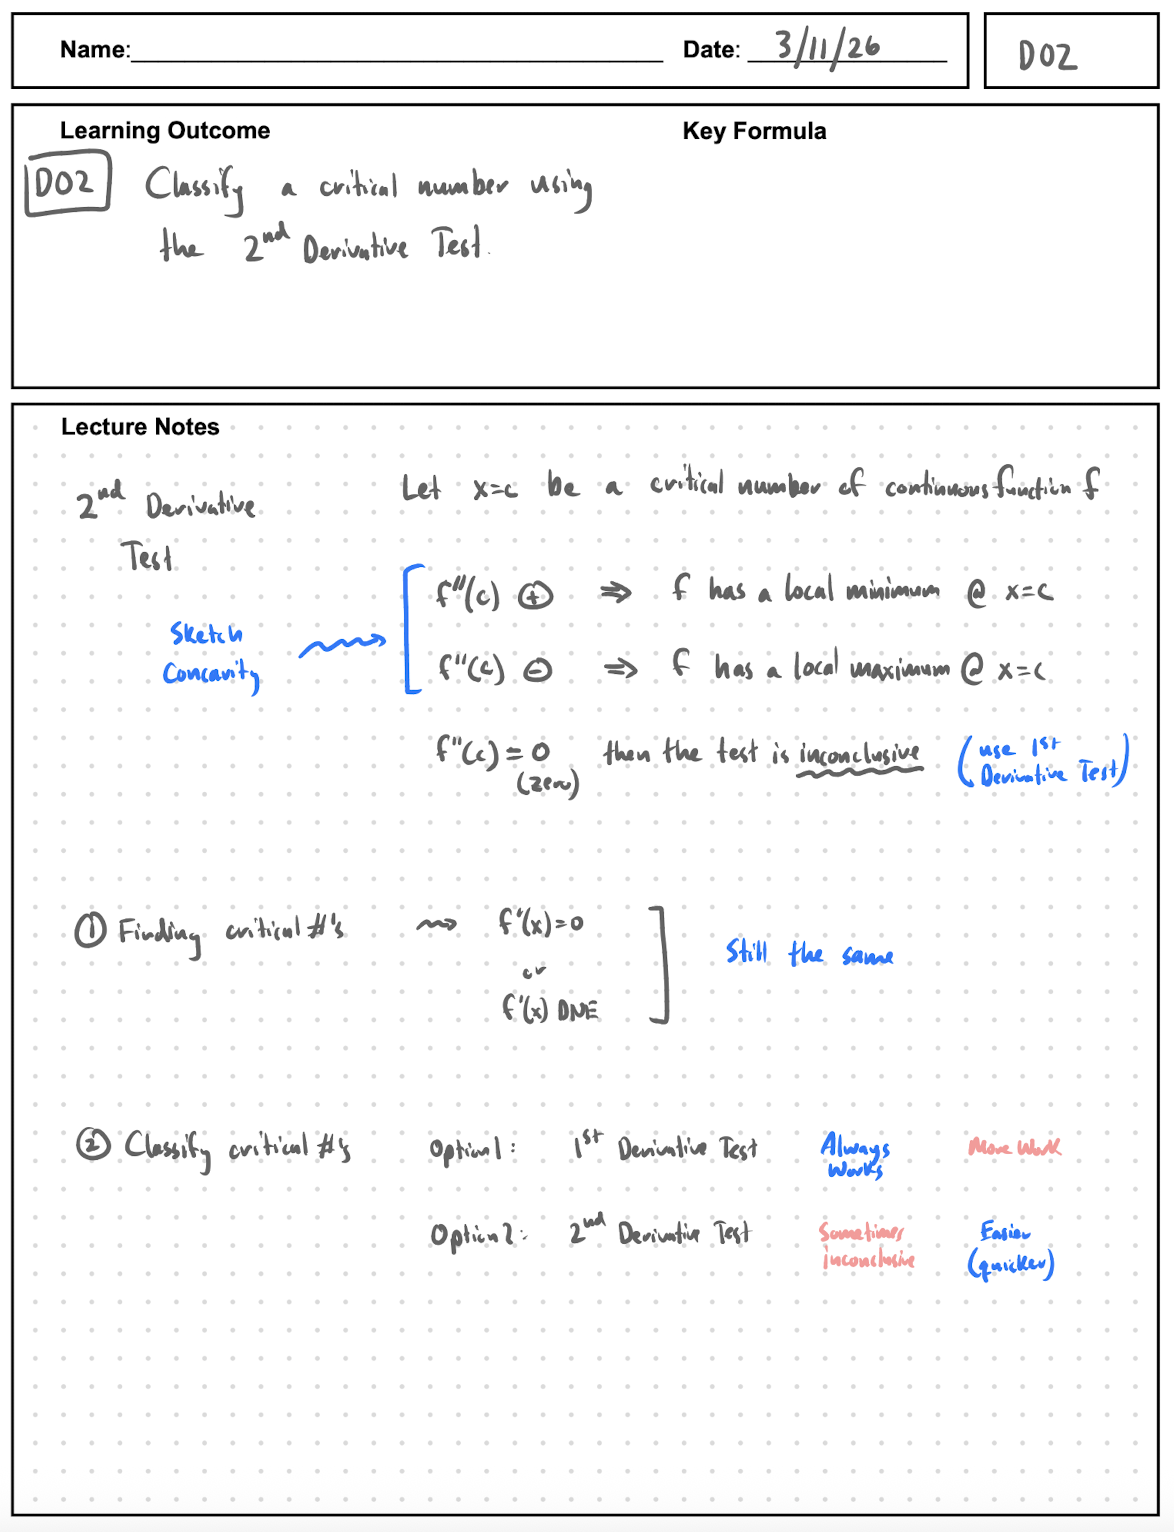 Name: Date: 3/11/26 D02
Learning Outcome Key Formula
D02 Classify a critical number using
the 2nd Derivative Test.
Lecture Notes
2nd Derivative Test
Let x=c be a critical number of continuous function f
Sketch Concavity
f''(c) ⊕ ⇒ f has a local minimum @ x=c
f''(c) ⊖ ⇒ f has a local maximum @ x=c
f''(c) = 0 then the test is inconclusive (use 1st
(zero) Derivative Test)
① Finding critical #'s f'(x)=0
or
f'(x) DNE
Still the same
② Classify critical #'s Option 1: 1st Derivative Test Always Works More Work
Option 2: 2nd Derivative Test Sometimes inconclusive Easier (quicker)